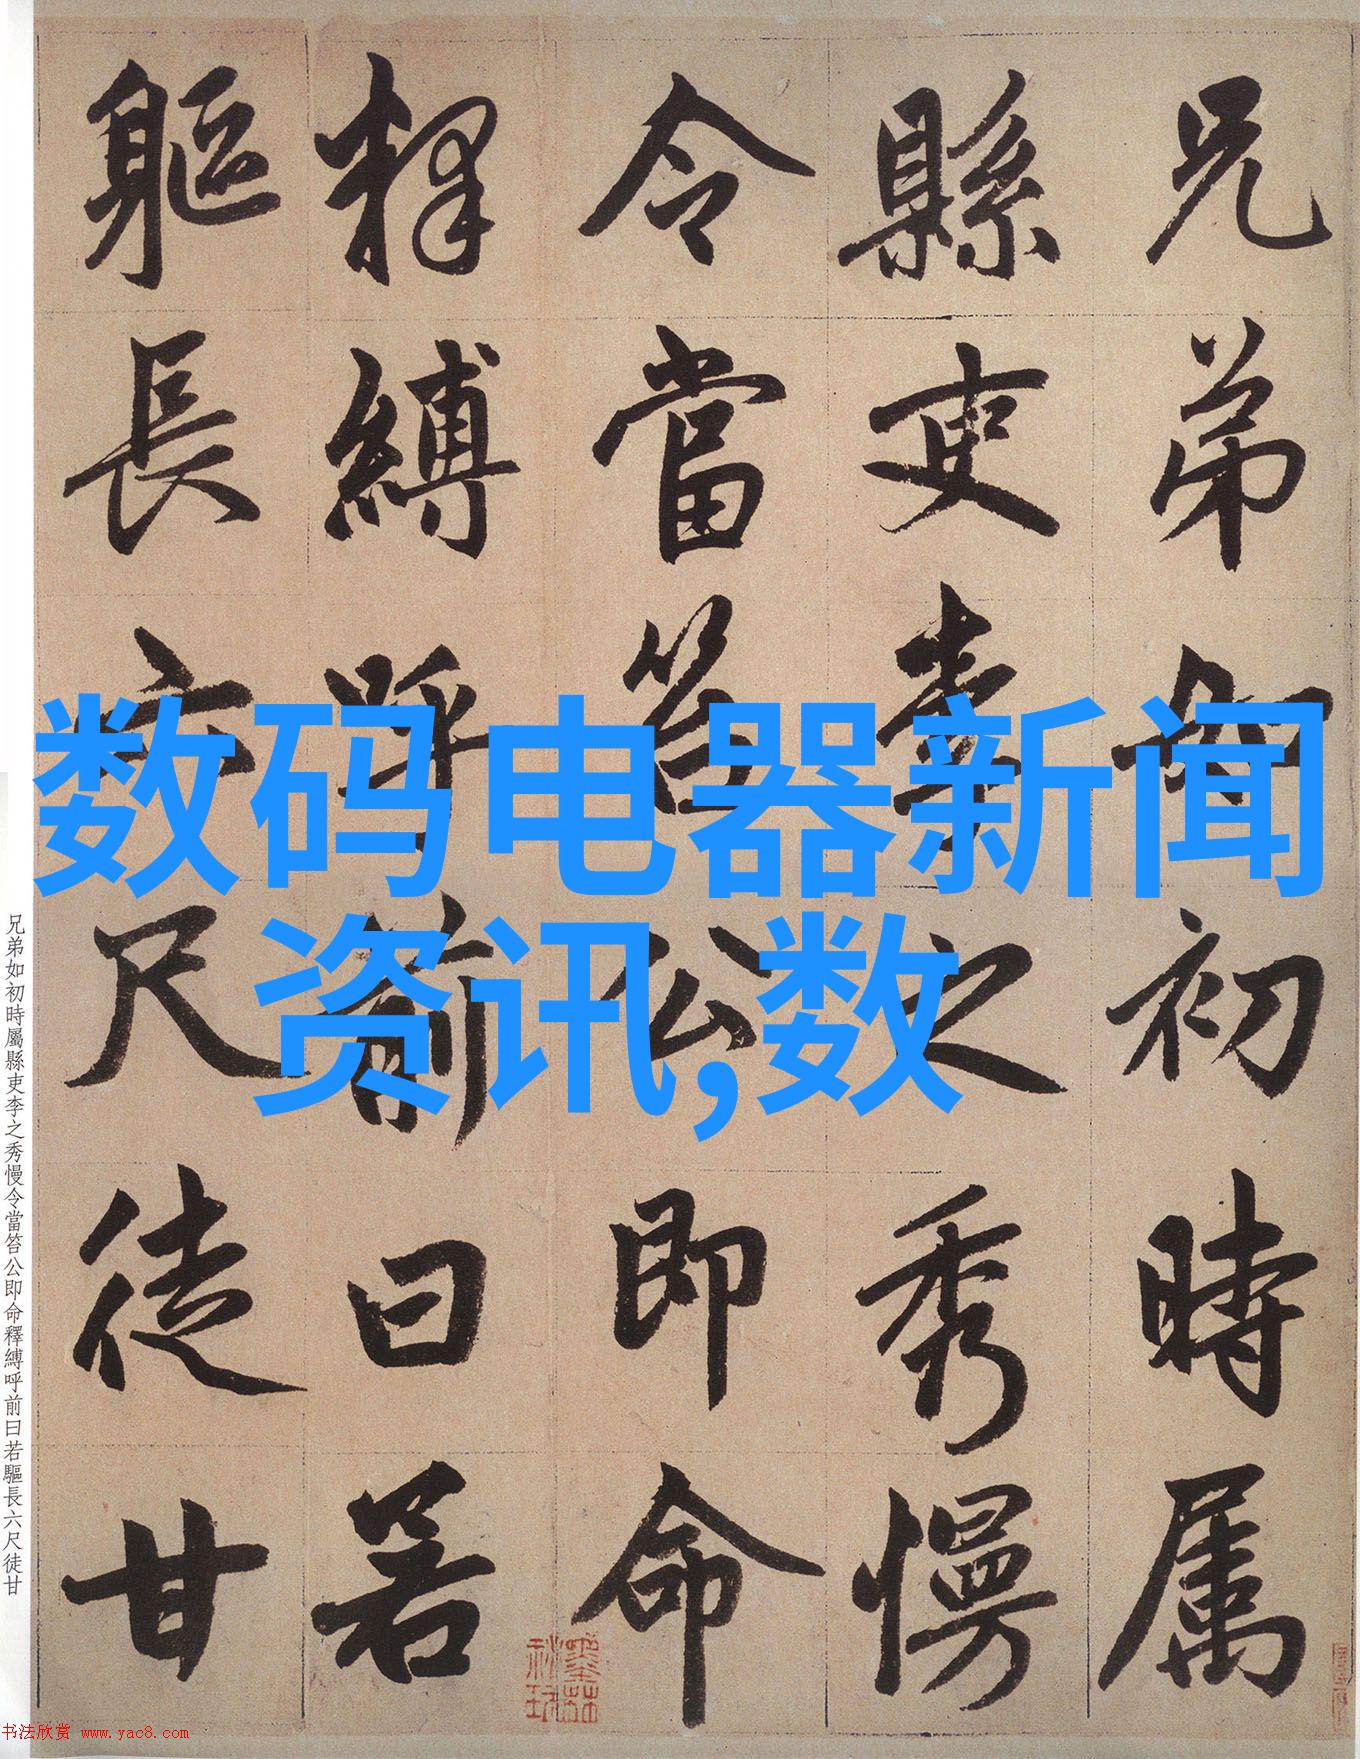 兄弟如初時属
縣吏李之秀慢
令當笞公即命
釋縛呼前曰若
軀長六尺徒甘
数码电器新闻
资讯,数
兄弟如初時屬縣吏李之秀慢令當笞公即命釋縛呼前曰若驅長六尺徒甘
书法欣赏 www.yac8.com